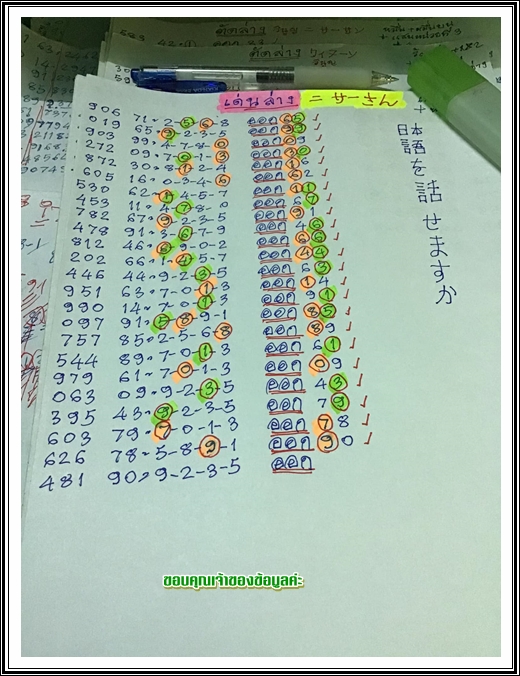 เด่นล่าง = サーさん
906 71-2-5-6-8 ออก 65 ✓
019 65-9-2-3-5 ออก 99 ✓
903 99-4-7-8-0 ออก 09 ✓
272 09-7-0-1-3 ออก 30 ✓
872 30-8-1-2-4 ออก 16 ✓
605 16-0-3-4-6 ออก 62 ✓
530 62-1-4-5-7 ออก 11 ✓
453 11-4-7-8-0 ออก 67 ✓
782 67-9-2-3-5 ออก 91 ✓
478 91-3-6-7-9 ออก 46 ✓
812 46-6-9-0-2 ออก 66 ✓
202 66-1-4-5-7 ออก 44 ✓
446 44-9-2-3-5 ออก 63 ✓
951 63-7-0-1-3 ออก 14 ✓
990 14-7-0-1-3 ออก 91 ✓
097 91-5-8-9-1 ออก 85 ✓
757 85-2-5-6-8 ออก 89 ✓
544 89-7-0-1-3 ออก 61 ✓
979 61-7-0-1-3 ออก 09 ✓
063 09-9-2-3-5 ออก 43 ✓
395 43-9-2-3-5 ออก 79 ✓
603 79-7-0-1-3 ออก 78 ✓
626 78-5-8-9-1 ออก 90 ✓
481 90-9-2-3-5 ออก
日本語を話せますか
ขอบคุณเจ้าของข้อมูลค่ะ